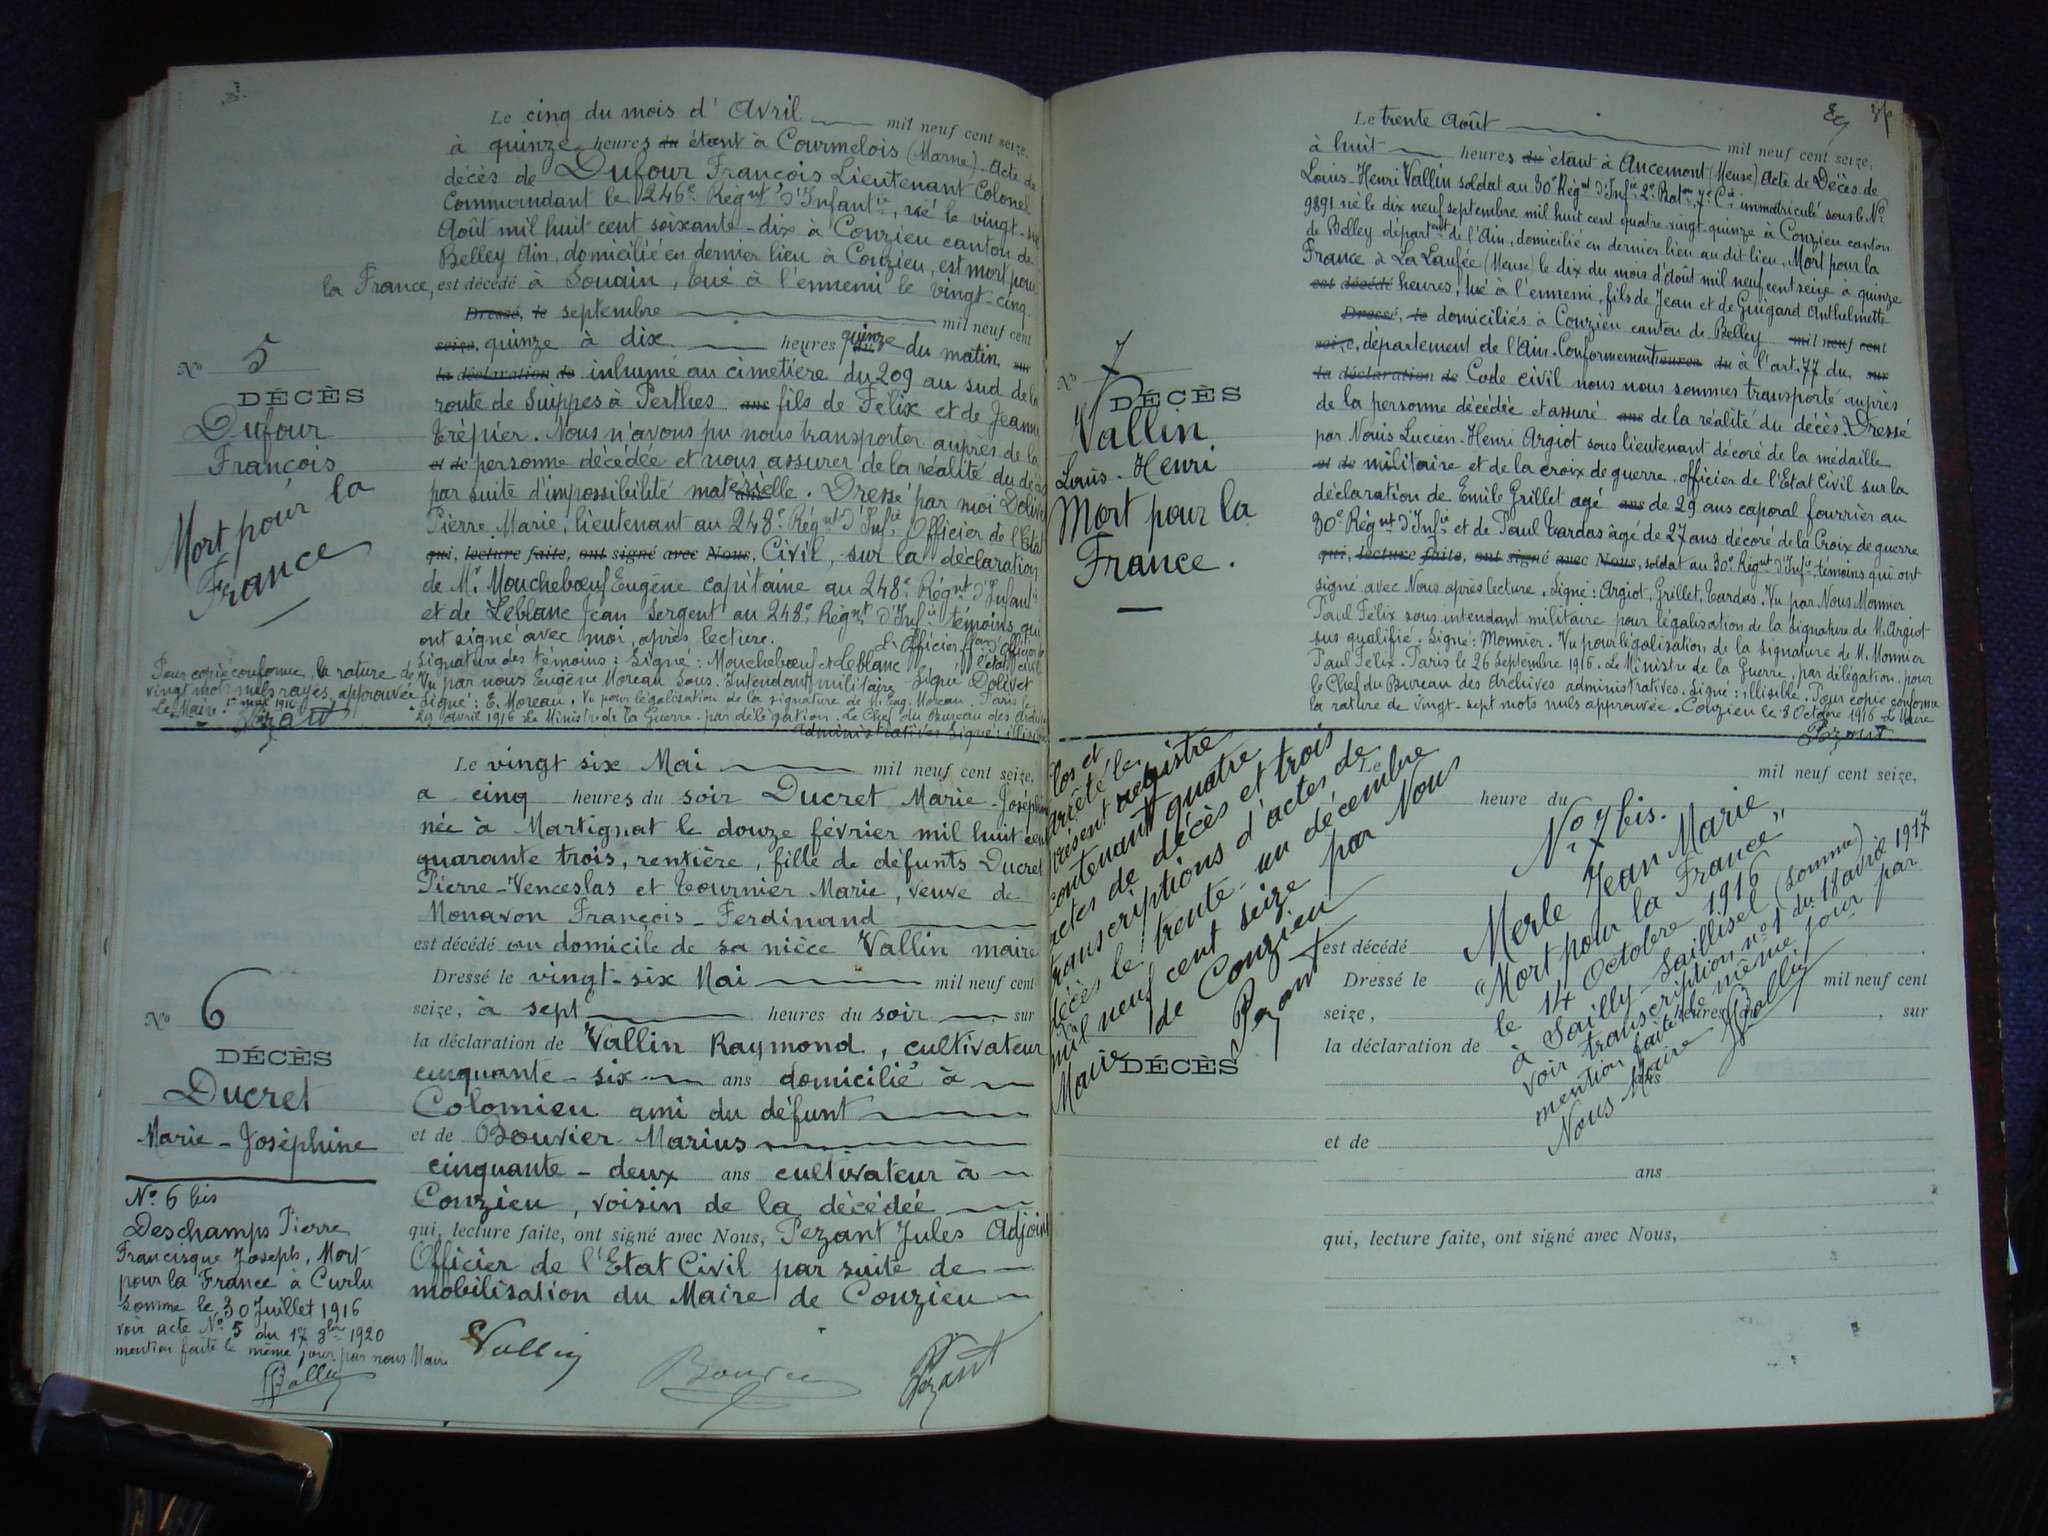 Le cinq du mois d'Avril mil neuf cent seize,
à quinze heures du étant à Courmelois (Marne). Acte de
décès de Dufour François Lieutenant Colonel
Commandant le 246e Régnt d'Infantie, né le vingt-
Août mil huit cent soixante-dix à Conzieu canton de
Belley Ain, domicilié en dernier lieu à Conzieu, est mort pour
la France, est décédé à Souain, tué à l'ennemi le vingt-cinq
Dressé, le septembre mil neuf cent
seize, quinze à dix heures quinze du du matin, sur
la déclaration de inhumé au cimetière du 209 au sud de la
route de Suippes à Perthes ans fils de Félix et de Jeanne
Trépier. Nous n'avons pu nous transporter auprès de la
et de personne décédée et nous assurer de la réalité du décès
par suite d'impossibilité materielle. Dressé par moi Dolivet
Pierre Marie, lieutenant au 248e Régnt d'Infie Officier de l'Etat
qui, lecture faite, ont signé avec Nous, Civil, sur la déclaration
de Mr Mouchebœuf Eugène capitaine au 248e Régnt d'Infantie
et de Leblanc Jean Sergent au 248e Régnt d'Infie témoins qui
ont signé avec moi, après lecture. L'Officier
l'état civil
Signature des témoins : Signé : Mouchebœuf et Leblanc
Vu par nous Eugène Moreau Sous-Intendant militaire Signé Dolivet
Signé : E. Moreau, Vu pour légalisation de la signature de M. Eug. Moreau. Paris le
29 avril 1916 Le Ministre de la Guerre par délégation. Le Chef du Bureau des Archives
administratives Signé : illisible
No 5
DÉCÈS
Dufour
François
Mort pour la
France
Pour copie conforme la rature de
vingt mots nuls rayés, approuvée
Le Maire. 1er mai 1916
Pezant
Le vingt six Mai mil neuf cent seize,
a cinq heures du soir Ducret Marie-Joséphine
née à Martignat le douze février mil huit cent
quarante trois, rentière, fille de défunts Ducret
Pierre-Venceslas et Tournier Marie, veuve de
Monavon François-Ferdinand
est décédé au domicile de sa nièce Vallin maire
Dressé le vingt-six Mai mil neuf cent
seize, à sept heures du soir, sur
la déclaration de Vallin Raymond, cultivateur
cinquante-six ans domicilié à
Colomieu ami du défunt
et de Bouvier Marius
cinquante-deux ans cultivateur à
Conzieu, voisin de la décédée
qui, lecture faite, ont signé avec Nous, Pezant Jules Adjoint
Officier de l'Etat Civil par suite de
mobilisation du Maire de Conzieu
Vallin Bouvier Pezant
No 6
DÉCÈS
Ducret
Marie-Joséphine
No 6 bis
Deschamps Pierre
Francisque Joseph, Mort
pour la France à Curlu
Somme le 30 Juillet 1916
voir acte No 5 du 17 8bre 1920
mention faite le même jour par nous Maire
Le trente Août mil neuf cent seize,
à huit heures du étant à Ancemont (Meuse) Acte de Décès de
Louis-Henri Vallin soldat au 30e Régnt d'Infie 2e Baton, 7e Cie immatriculé sous le No
9891 né le dix neuf septembre mil huit cent quatre-vingt-quinze à Conzieu canton
de Belley départnt de l'Ain, domicilié en dernier lieu au dit lieu, Mort pour la
France à La Laufée (Meuse) le dix du mois d'août mil neuf cent seize à quinze
est décédé heures, tué à l'ennemi, fils de Jean et de Guigard Anthelmette
Dressé, le domiciliés à Conzieu canton de Belley mil neuf cent
seize, département de l'Ain. Conformement heures du à l'art. 77 du, sur
la déclaration de Code civil nous nous sommes transporté auprès
de la personne décédée et assuré ans de la réalité du décès. Dressé
par Nouis Lucien-Henri Argiot sous lieutenant décoré de la médaille
et de militaire et de la croix de guerre, officier de l'Etat Civil sur la
déclaration de Emile Grillet agé ans de 29 ans caporal fourrier au
30e Régnt d'Infie et de Paul Tardas âgé de 27 ans, décoré de la Croix de guerre
qui, lecture faite, ont signé avec Nous, soldat au 30e Régnt d'Infie témoins qui ont
signé avec Nous après lecture. Signé : Argiot, Grillet, Tardas. Vu par Nous Monnier
Paul Félix sous-intendant militaire pour légalisation de la signature de M. Argiot
sus qualifié. Signé : Monnier. Vu pour légalisation de la signature de M. Monnier
Paul Félix. Paris le 26 Septembre 1916. Le Ministre de la Guerre, par délégation, pour
le Chef du Bureau des Archives administratives. Signé : illisible. Pour copie conforme
la rature de vingt-sept mots nuls approuvée. Conzieu le 8 Octobre 1916 Le Maire
Pezant
No 7
DÉCÈS
Vallin
Louis-Henri
Mort pour la
France.
Clos et
arrêté le
présent registre
contenant quatre
actes de décès et trois
transcriptions d'actes de
décès le trente-un décembre
mil neuf cent seize par Nous
Maire de Conzieu
Pezant
DÉCÈS
Le mil neuf cent seize,
heure du
est décédé
Dressé le mil neuf cent
seize, heures, sur
la déclaration de
ans
et de
ans
qui, lecture faite, ont signé avec Nous,
No 7 bis.
Merle Jean Marie
"Mort pour la France"
le 14 Octobre 1916
à Sailly-Saillisel (Somme)
voir transcription no 1 du 18 avril 1917
mention faite le même jour par
Nous Maire